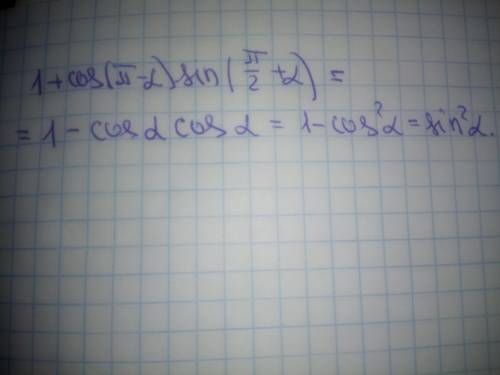 1+cos(π-α)sin(π/2+α)=
=1-cosα cosα=1-cos²α=sin²α.